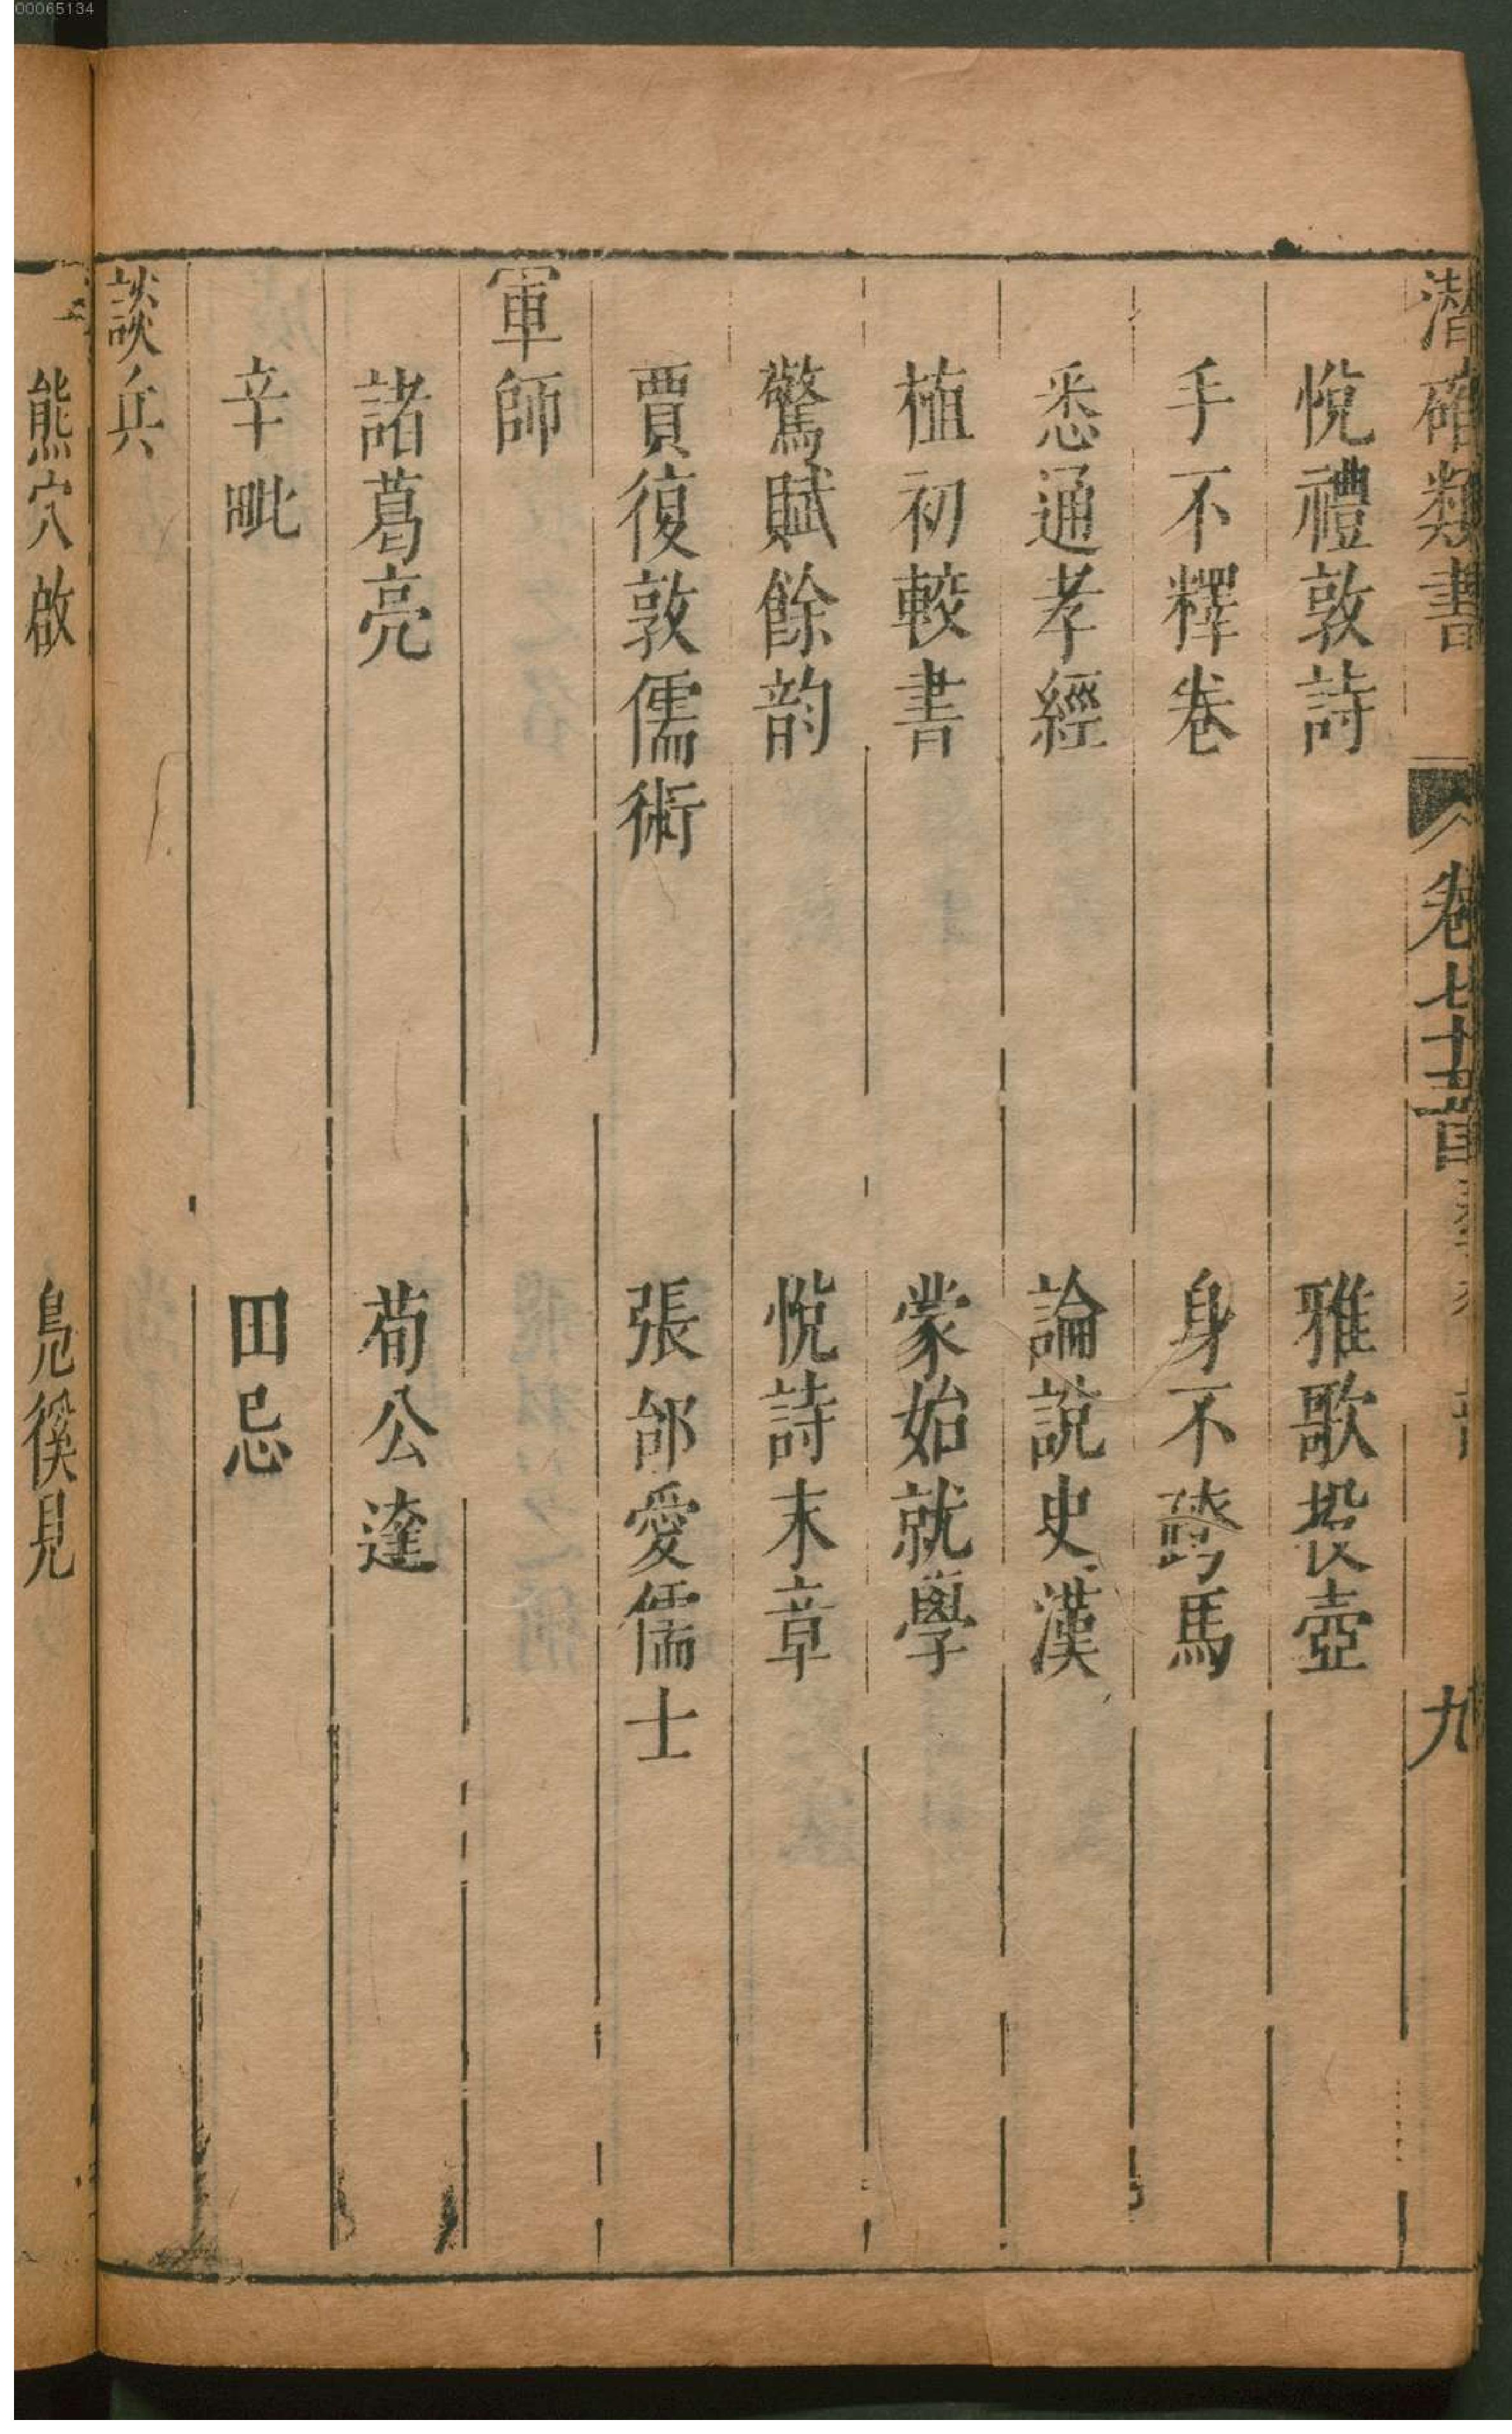 00065134
潛確類書 卷七十五 九
悅禮敦詩 雅歌投壺
手不釋卷 身不跨馬
悉通孝經 論說史漢
植初較書 蒙始就學
驚賦餘韵 悅詩末章
賈復敦儒術 張郃愛儒士
軍師
諸葛亮 荀公達
辛毗 田忌
談兵
熊穴啟 鳥徯見